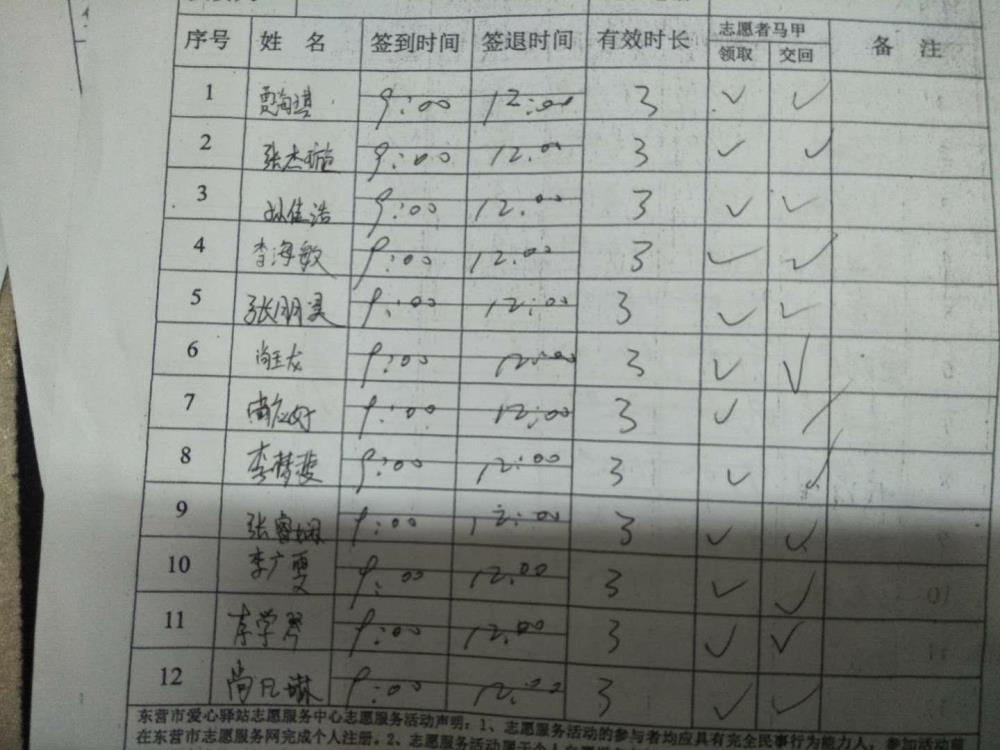 序号 姓 名 签到时间 签退时间 有效时长 志愿者马甲 备 注
领取 交回
1 9:00 12:00 3 ✓ ✓
2 张杰璇 9:00 12:00 3 ✓ ✓
3 孙佳浩 9:00 12:00 3 ✓ ✓
4 李海敏 9:00 12:00 3 ✓ ✓
5 9:00 12:00 3 ✓ ✓
6 9:00 12:00 3 ✓ ✓
7 9:00 12:00 3 ✓
8 李梦斐 9:00 12:00 3 ✓ ✓
9 张睿娴 9:00 12:00 3 ✓ ✓
10 李广雯 9:00 12:00 3 ✓ ✓
11 李学琴 9:00 12:00 3 ✓ ✓
12 尚凡琳 9:00 12:00 3 ✓ ✓
东营市爱心驿站志愿服务中心志愿服务活动声明：1、志愿服务活动的参与者均应具有完全民事行为能力人，参加活动前
在东营市志愿服务网完成个人注册。2、志愿服务活动属于个人自愿